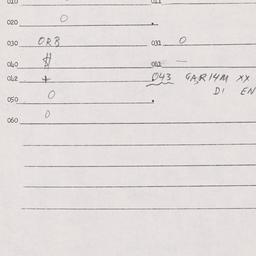 010 011
020 0
030 ORB 031 0
040 # 041 —
042 + 043 GARI4M XX
DI EN
050 0
060 0